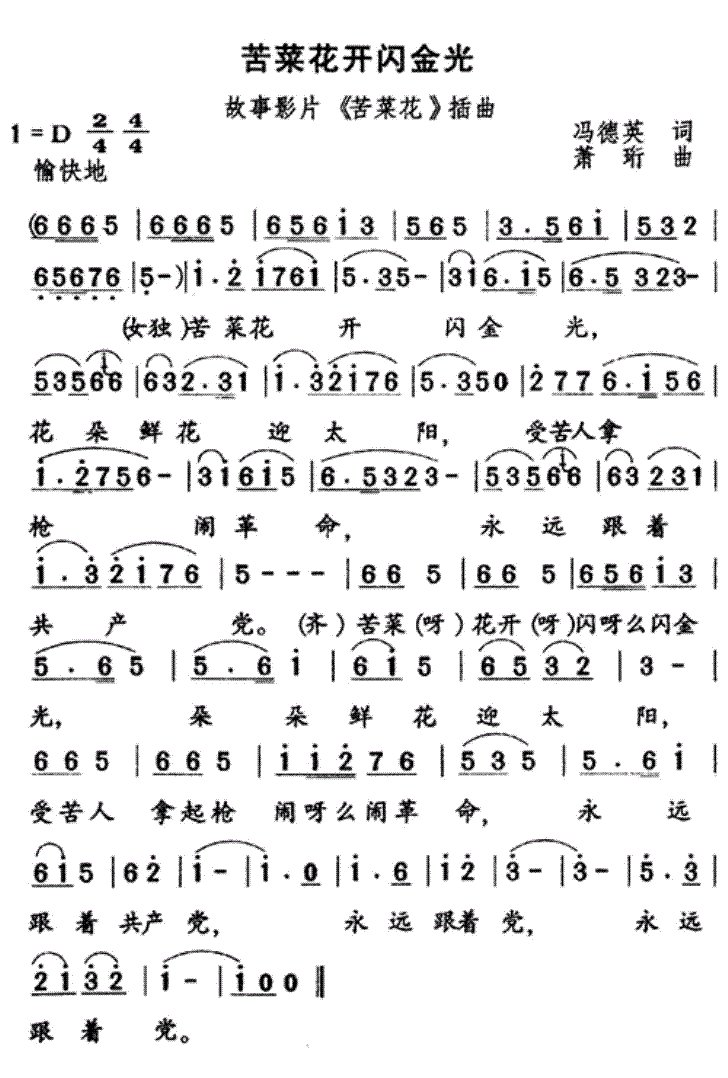 苦菜花开闪金光
故事影片《苦菜花》插曲
1 = D 2/4 4/4
冯德英 词
愉快地
萧珩 曲
(6 6 6 5 | 6 6 6 5 | 6 5 6 i 3 | 5 6 5 | 3 . 5 6 i | 5 3 2 |
6 5 6 7 6 | 5 - ) | i . 2 i 7 6 i | 5 . 3 5 - | 3 i 6 . i 5 | 6 . 5 3 2 3 - |
(女独)苦 菜花 开 闪 金 光,
5 3 5 6 6 | 6 3 2 . 3 1 | i . 3 2 i 7 6 | 5 . 3 5 0 | 2 7 7 6 . i 5 6 |
花 朵 鲜 花 迎 太 阳, 受苦人拿
i . 2 7 5 6 - | 3 i 6 i 5 | 6 . 5 3 2 3 - | 5 3 5 6 6 | 6 3 2 3 1 |
枪 闹 革 命, 永 远 跟 着
i . 3 2 i 7 6 | 5 - - - | 6 6 5 | 6 6 5 | 6 5 6 i 3 |
共 产 党。 (齐) 苦菜(呀)花开(呀)闪呀么闪金
5 . 6 5 | 5 . 6 i | 6 i 5 | 6 5 3 2 | 3 - |
光, 朵 朵 鲜 花 迎 太 阳,
6 6 5 | 6 6 5 | i i 2 7 6 | 5 3 5 | 5 . 6 i |
受苦人 拿起枪 闹呀么闹革 命, 永 远
6 i 5 | 6 2 | i - | i . 0 | i . 6 | i 2 | 3 - | 3 - | 5 . 3 |
跟 着 共产 党, 永 远 跟着 党, 永 远
2 i 3 2 | i - | i 0 0 ‖
跟 着 党。